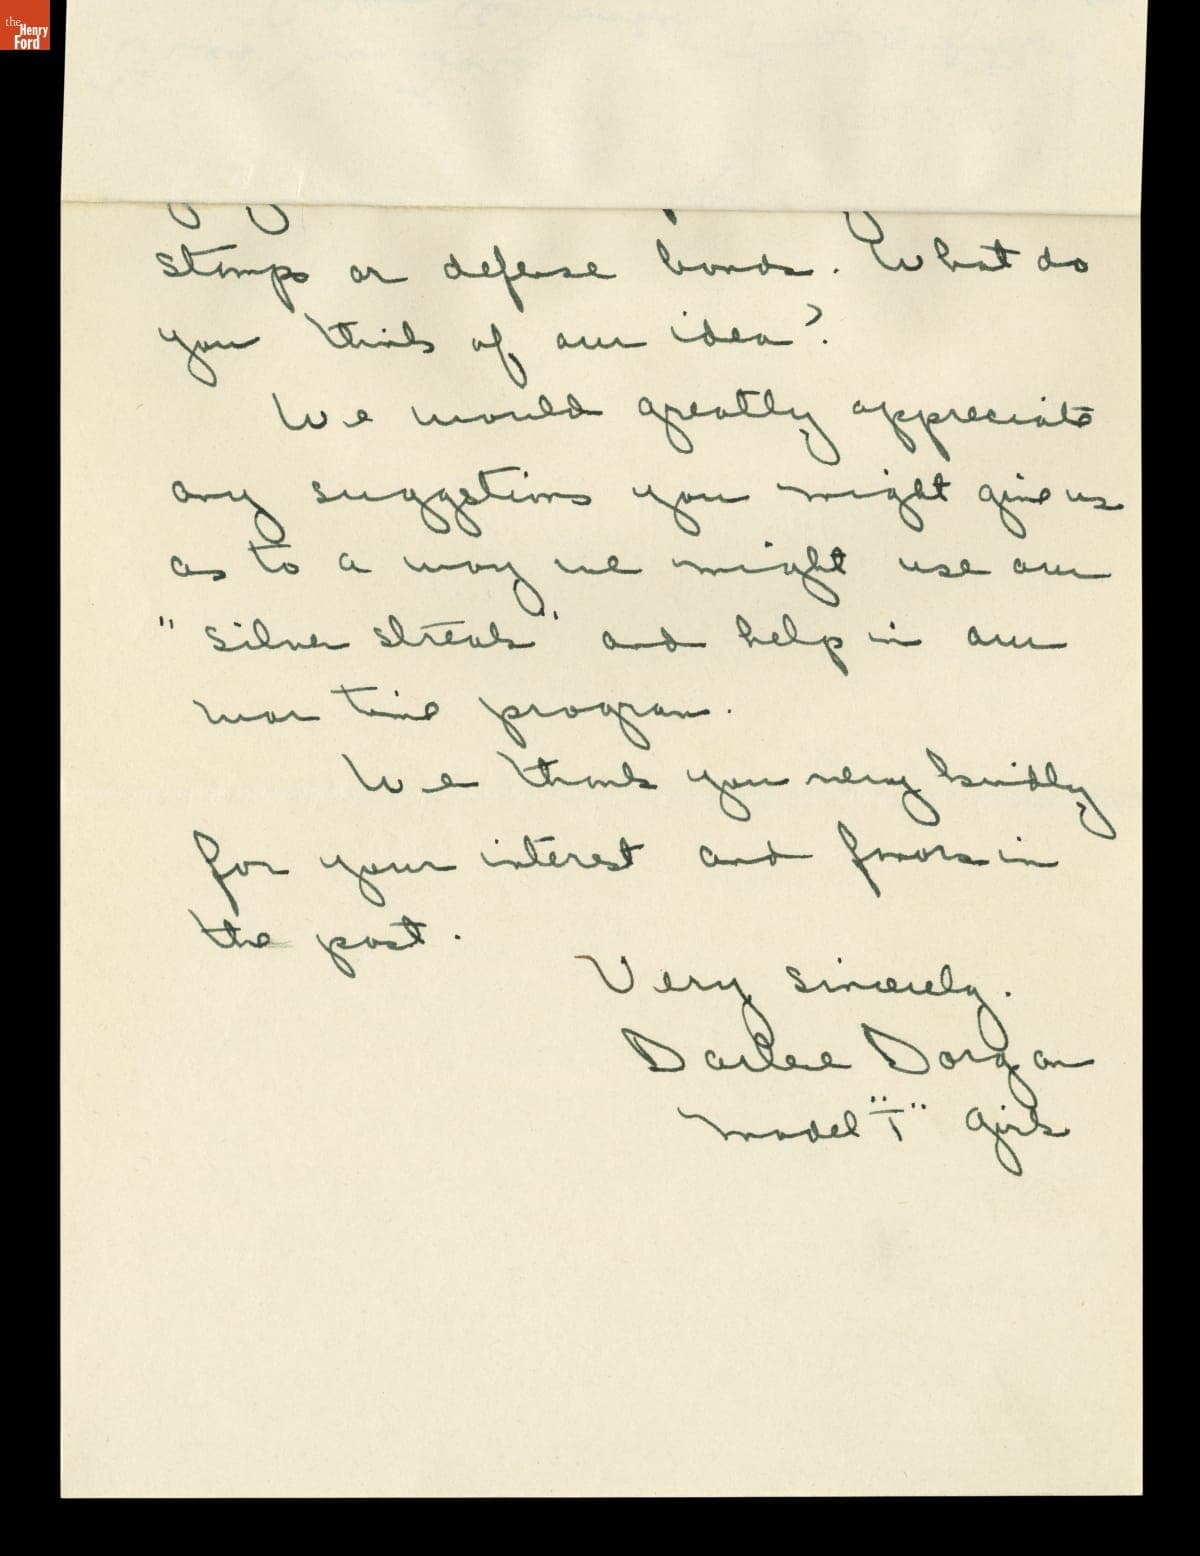 the
Henry
Ford
stamps or defense bonds. What do
you think of our idea?
We would greatly appreciate
any suggstions you might give us
as to a way we might use our
"silver streak" and help in our
war time program.
We thank you very kindly
for your interest and favors in
the past.
Very sincerely.
Darlee Dorgan
Model "T" Girls